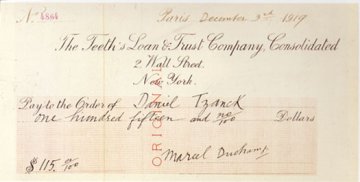 No 4864 Paris, December 3rd 1919
The Teeth's Loan & Trust Company, Consolidated
2 Wall Street.
New York.
Pay to the Order of Daniel Tzanck
one hundred fifteen and no/100 Dollars
$ 115. 00/100
Marcel Duchamp
ORIGINAL